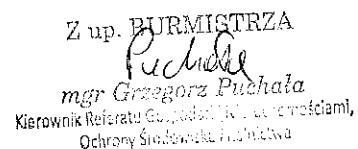 Z up. BURMISTRZA
Puchała
mgr Grzegorz Puchała
Kierownik Referatu Nieruchomościami,
Ochrony Środowiska